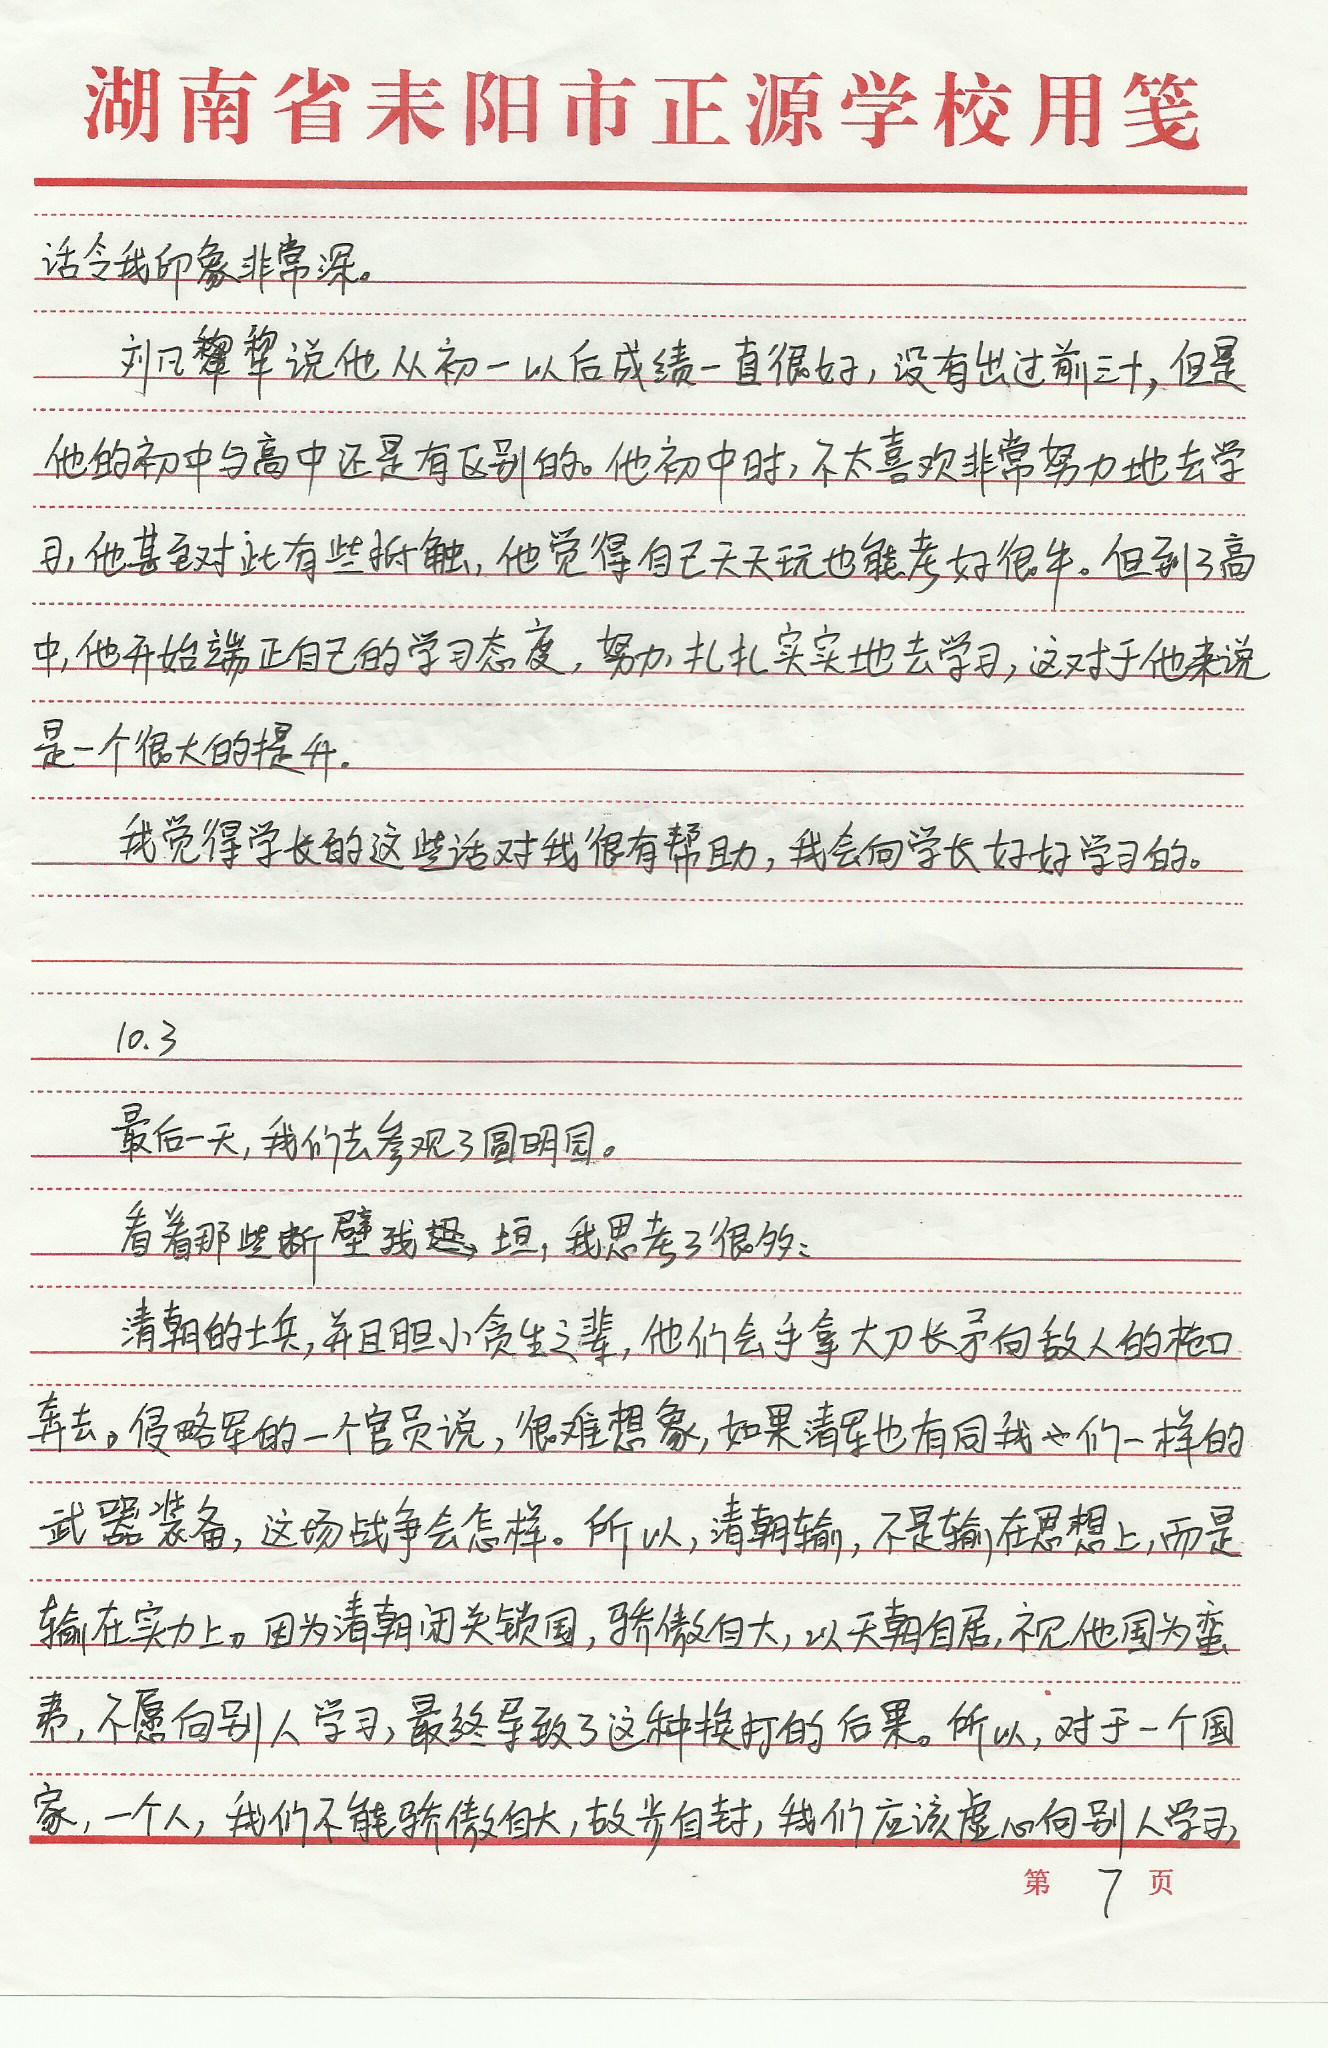 湖南省耒阳市正源学校用笺
话令我印象非常深。
刘凡犁说他从初一以后成绩一直很好，没有出过前三十，但是
他的初中与高中还是有区别的。他初中时，不太喜欢非常努力地去学
习，他甚至对此有些抵触，他觉得自己天天玩也能考好很牛。但到了高
中，他开始端正自己的学习态度，努力，扎扎实实地去学习，这对于他来说
是一个很大的提升。
我觉得学长的这些话对我很有帮助，我会向学长好好学习的。
10.3
最后一天，我们去参观了圆明园。
看着那些断壁残垣，我思考了很多：
清朝的士兵，并且胆小贪生之辈，他们会手拿大刀长矛向敌人的枪口
奔去。侵略军的一个官员说，很难想象，如果清军也有同我们一样的
武器装备，这场战争会怎样。所以，清朝输，不是输在思想上，而是
输在实力上。因为清朝闭关锁国，骄傲自大，以天朝自居，视他国为蛮
夷，不愿向别人学习，最终导致了这种挨打的后果。所以，对于一个国
家，一个人，我们不能骄傲自大，故步自封，我们应该虚心向别人学习，
第 7 页